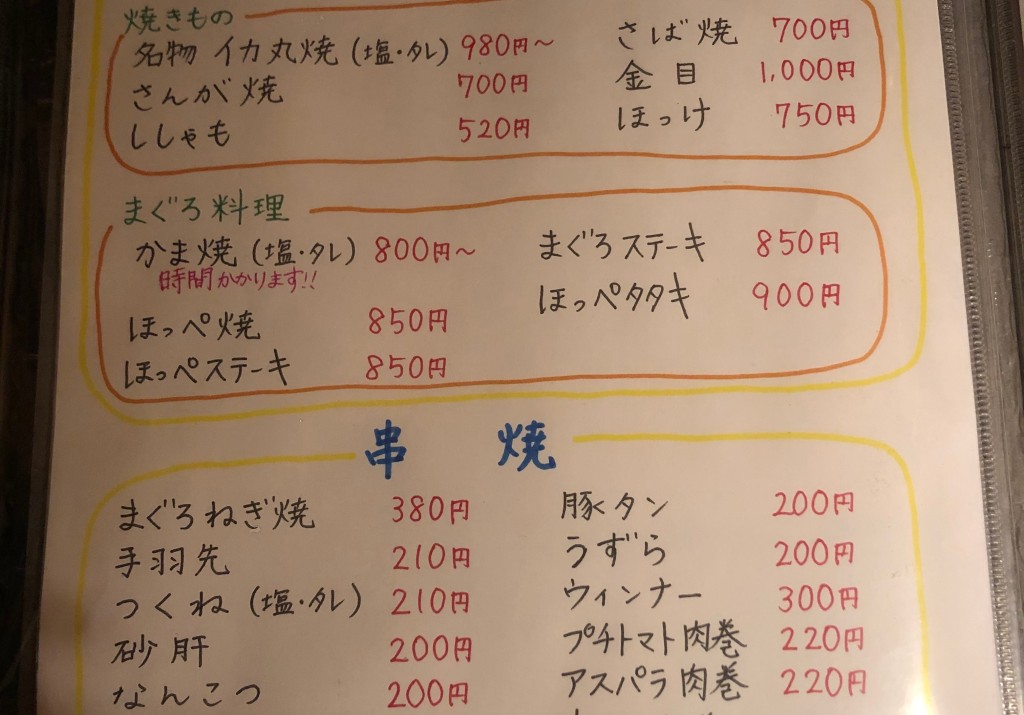 焼きもの
名物 イカ丸焼 (塩・タレ) 980円~
さんが焼 700円
ししゃも 520円
さば焼 700円
金目 1,000円
ほっけ 750円
まぐろ料理
かま焼 (塩・タレ) 800円~
時間かかります!!
ほっぺ焼 850円
ほっぺステーキ 850円
まぐろステーキ 850円
ほっぺタタキ 900円
串 焼
まぐろねぎ焼 380円
手羽先 210円
つくね (塩・タレ) 210円
砂肝 200円
なんこつ 200円
豚タン 200円
うずら 200円
ウィンナー 300円
プチトマト肉巻 220円
アスパラ肉巻 220円